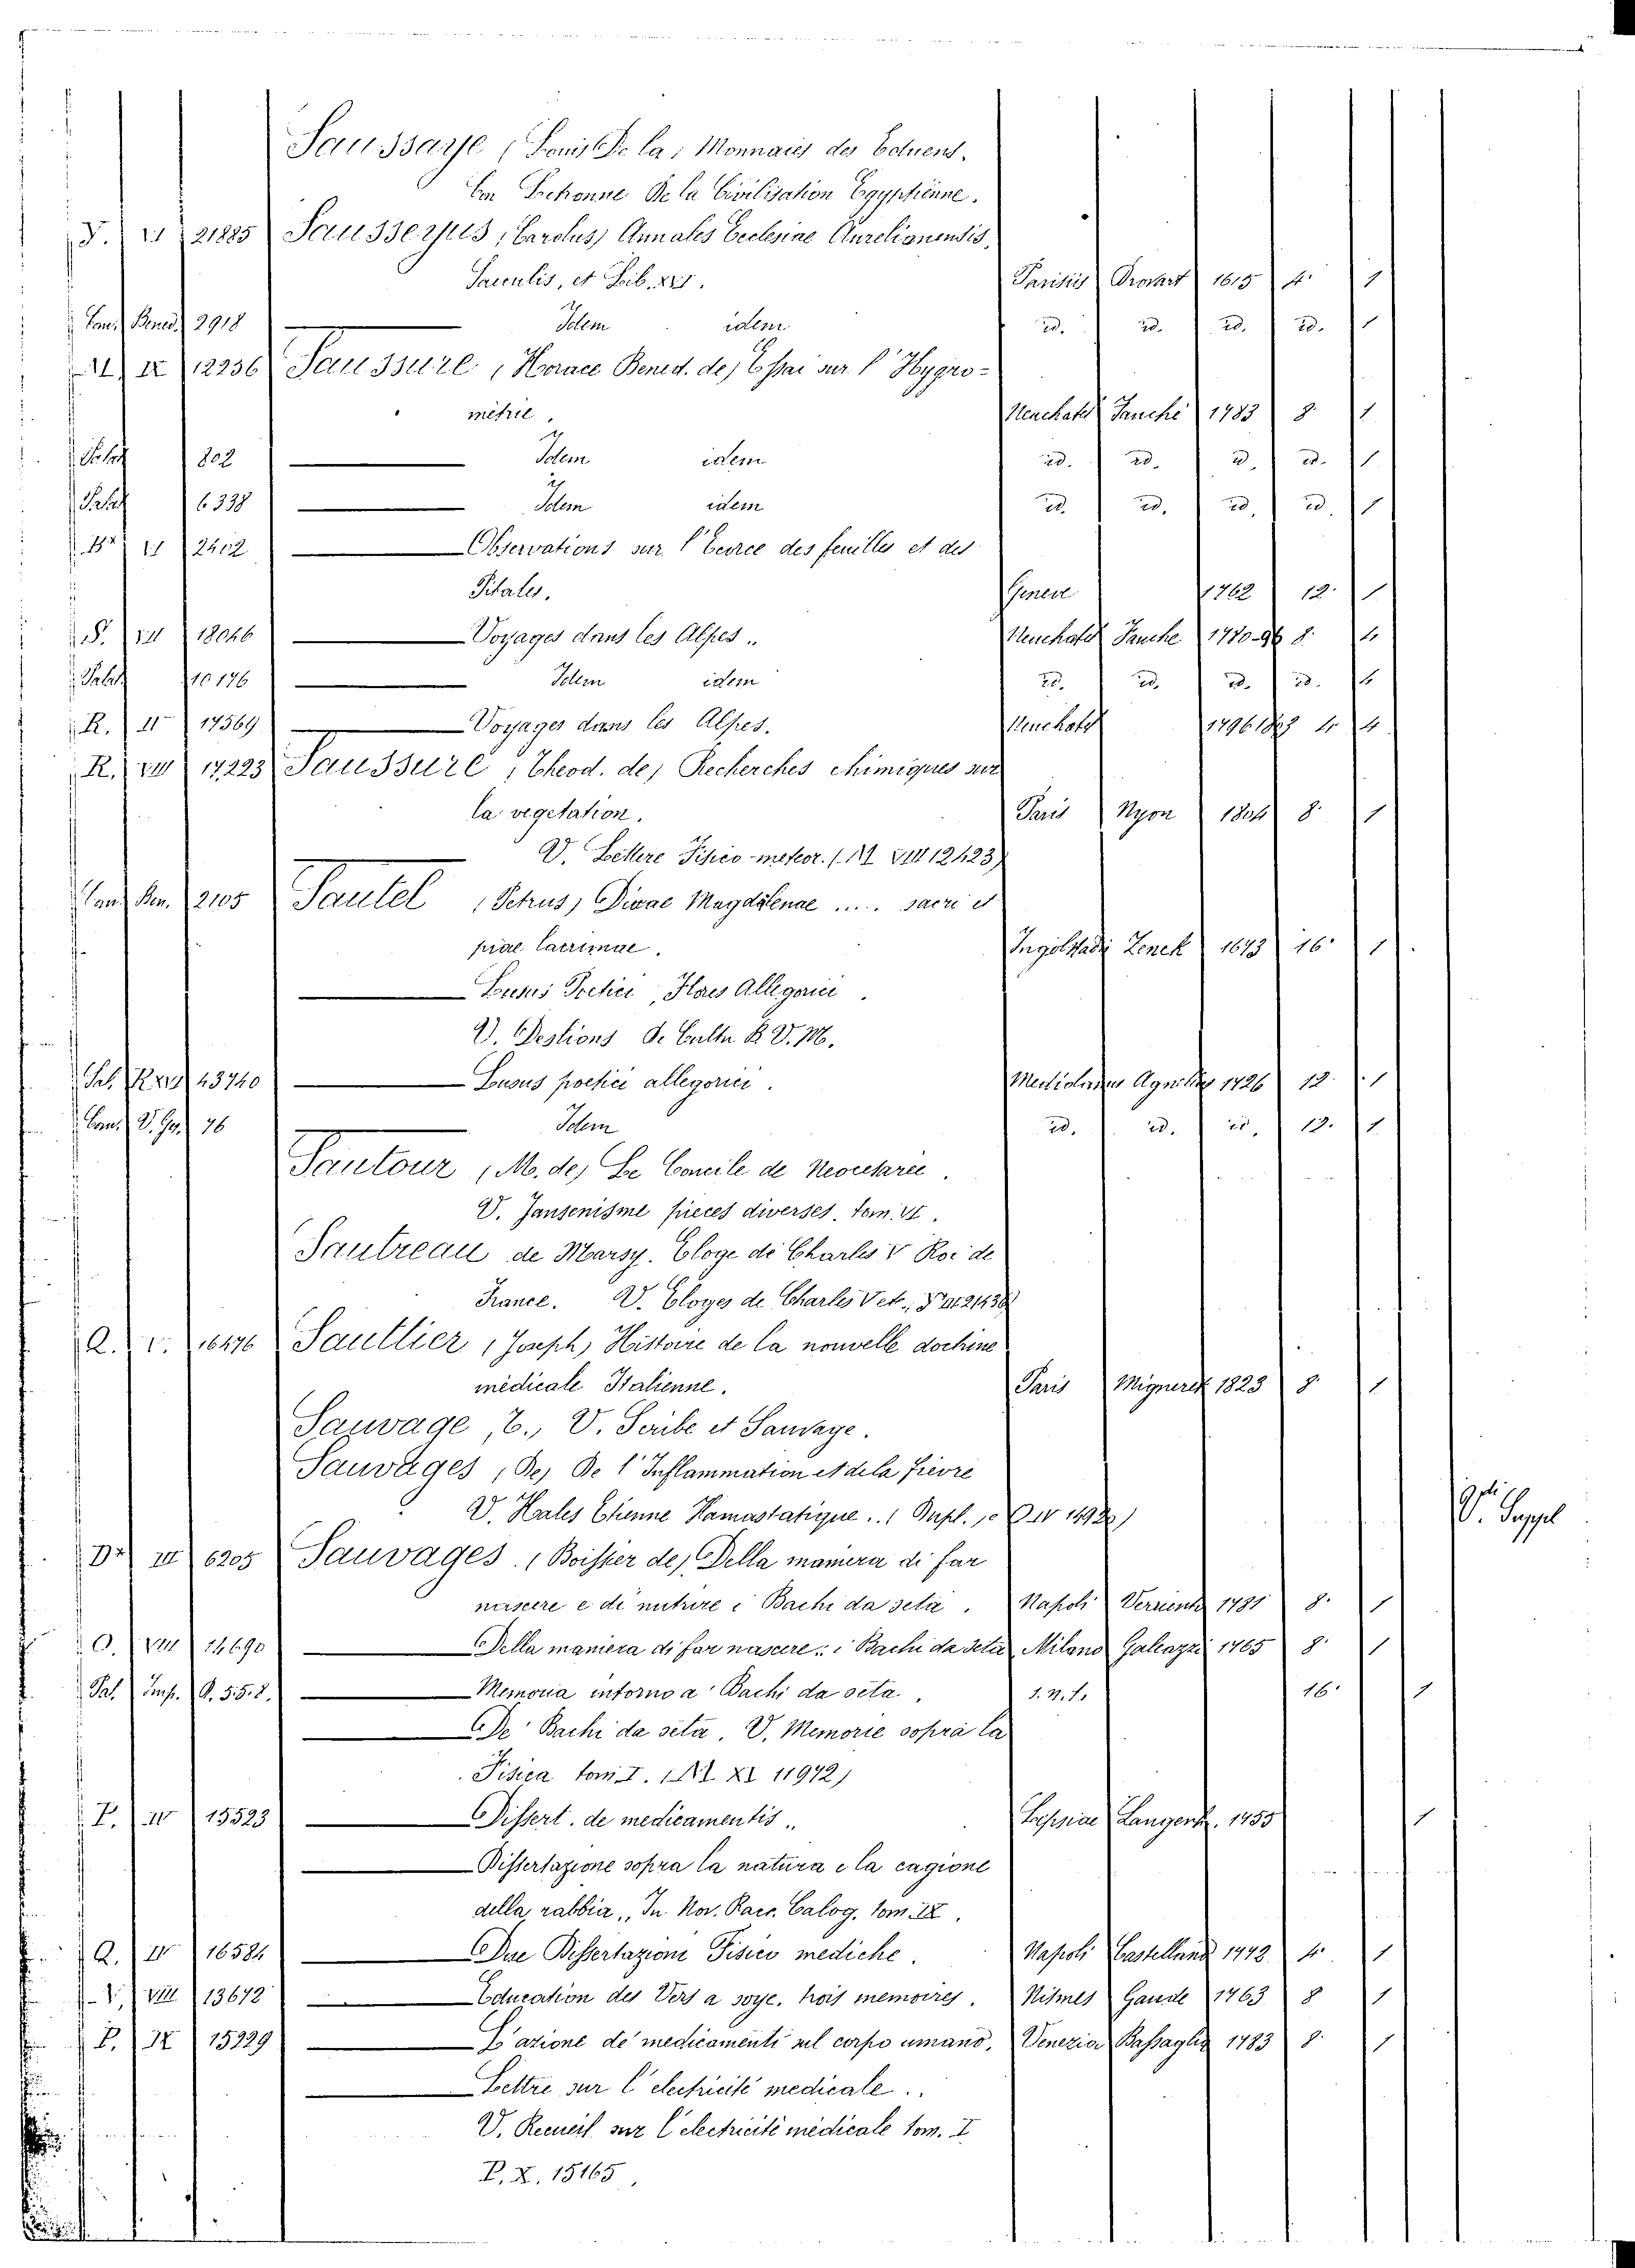 Saussaye (Louis De la) Monnaies des Eduens.
De la Civilisation Egyptienne.
V. VI 21885 Sausseyus (Carolus) Annales Ecclesiae Aurelianensis,
Saeculis, et Lib. XVI. Parisiis Drouart 1615 4. 1
Bened. 2918 Idem idem id. id. id. id. 1
M IX 12236 Saussure (Horace Bened. de) Essai sur l'Hygro-
métrie. Neuchatel Fauche 1783 8. 1
Palat 802 Idem idem id. id. id. id. 1
Palat 6338 Idem idem id. id. id. id. 1
Ba VI 2402 Observations sur l'Ecorce des feuilles et des
Pétales. Geneve 1762 12. 1
S. 18046 Voyages dans les Alpes.. Neuchatel Fauche 1780-96 8. 4
Palat 10176 Idem idem id. id. id. id.
R. II 17569 Voyages dans les Alpes. Neuchatel 1796 1803 4. 4
R. VIII 17223 Saussure (Theod. de) Recherches chimiques sur
la vegetation. Paris Nyon 1804 8. 1
V. Lettere Fisico-meteor. (M VIII 12423)
2105 Sautel (Petrus) Divae Magdalenae ..... sacri et
piae lacrimae. Ingolstadii Zenck 1673 16. 1
Lusus Poetici, Flores Allegorici.
V. Destions De Cultu B. V. M.
43740 Lusus poetici allegorici. Mediolani Agnelli 1726 12. 1
V. Ga. 76 Idem id. id. id. 12. 1
Sautour (M. de) Le Concile de
V. Jansenisme pieces diverses. tom. VI.
Sautreau de Marsy. Eloge de Charles V Roi de
France. V. Eloges de Charles V etc. 21436
Q. V. 16476 Sauttier (Joseph) Histoire de la nouvelle doctrine
médicale Italienne. Paris Migneret 1823 8. 1
Sauvage, T., V. Scribe et Sauvage.
Sauvages (De) De l'Inflammation et de la fievre
V. Hales Etienne Hamastatique..
Da III 6205 Sauvages (Boissier de) Della maniera di far
nascere e di nutrire i Bachi da seta. Napoli Verriento 1781 8. 1
O. VIII 14690 Della maniera di far nascere.. i Bachi da seta Milano Galeazzi 1765 8. 1
Pal. Imp. Q. 5. 5. 8. Memoria intorno a' Bachi da seta. s. n. t. 16. 1
De' Bachi da seta. V. Memorie sopra la
Fisica tom. I. (M XI 11972)
P. IV 15523 Dissert. de medicamentis.. Lipsiae Langenh. 1755 1
Dissertazione sopra la natura e la cagione
della rabbia., In Nov. Racc. Calog. tom. IX.
Q. IV 16584 Due Dissertazioni Fisico mediche. Napoli Castellano 1772 4. 1
V. VIII 13672 Education des Vers a soye. trois memoires. Nismes Gaude 1763 8 1
P. IX 15229 L'azione de' medicamenti sul corpo umano. Venezia Bassaglia 1783 8. 1
Lettre sur l'electricité medicale..
V. Recueil sur l'electricité médicale tom. I
P. X. 15165.